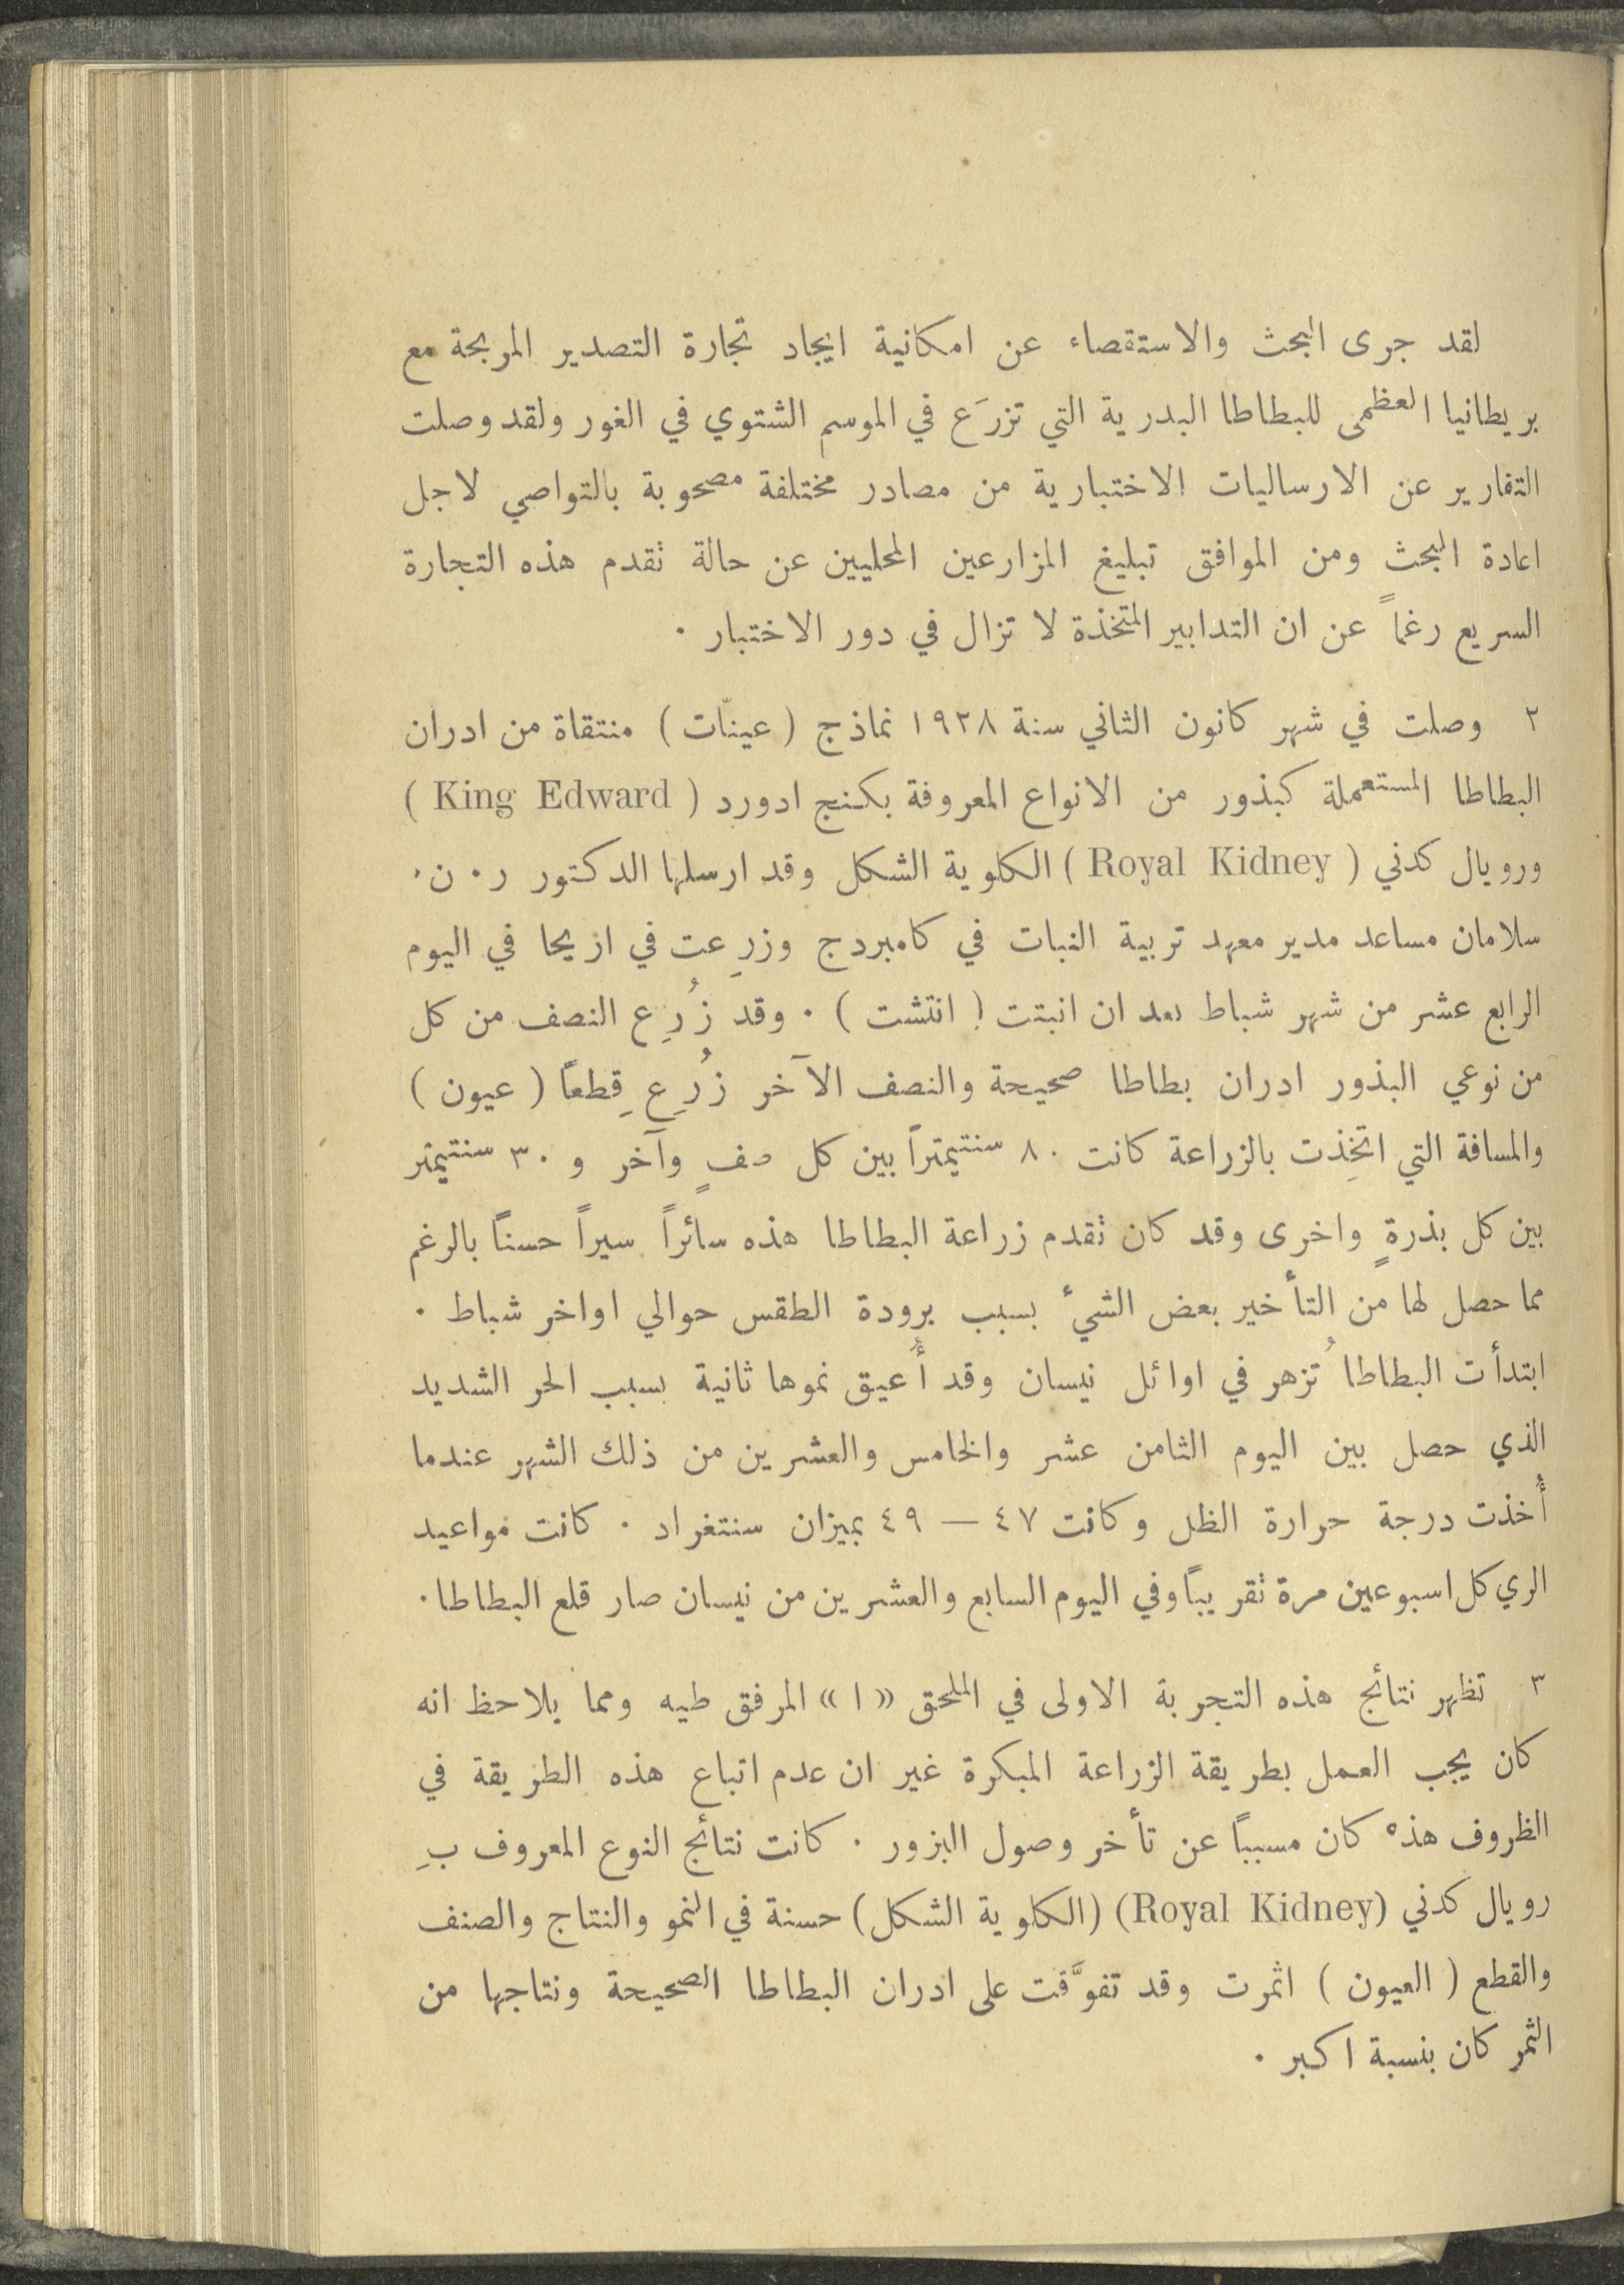 لقد جرى البحث والاستقصاء عن امكانية ايجاد تجارة التصدير المربحة مع
بريطانيا العظمى للبطاطا البدرية التي تزرَع في الموسم الشتوي في الغور ولقد وصلت
التقارير عن الارساليات الاختبارية من مصادر مختلفة مصحوبة بالتواصي لاجل
اعادة البحث ومن الموافق تبليغ المزارعين المحليين عن حالة تقدم هذه التجارة
السريع رغماً عن ان التدابير المتخذة لا تزال في دور الاختبار .
٢ وصلت في شهر كانون الثاني سنة ١٩٢٨ نماذج ( عينّات ) منتقاة من ادران
البطاطا المستعملة كبذور من الانواع المعروفة بكنج ادورد ( King Edward )
ورويال كدني ( Royal Kidney ) الكلوية الشكل وقد ارسلها الدكتور ر . ن .
سلامان مساعد مدير معهد تربية النبات في كامبردج وزرِعت في اريحا في اليوم
الرابع عشر من شهر شباط بعد ان انبتت ( انتشت ) . وقد زُرِع النصف من كل
من نوعي البذور ادران بطاطا صحيحة والنصف الآخر زُرِع قِطعاً ( عيون )
والمسافة التي اتخِذت بالزراعة كانت ٨٠ سنتيمتراً بين كل صفٍ وآخر و ٣٠ سنتيمتر
بين كل بذرةٍ واخرى وقد كان تقدم زراعة البطاطا هذه سائراً سيراً حسناً بالرغم
مما حصل لها من التأخير بعض الشيء بسبب برودة الطقس حوالي اواخر شباط .
ابتدأت البطاطا تُزهر في اوائل نيسان وقد أُعيق نموها ثانية بسبب الحر الشديد
الذي حصل بين اليوم الثامن عشر والخامس والعشرين من ذلك الشهر عندما
أُخذت درجة حرارة الظل وكانت ٤٧ — ٤٩ بميزان سنتغراد . كانت مواعيد
الري كل اسبوعين مرة تقريباً وفي اليوم السابع والعشرين من نيسان صار قلع البطاطا .
٣ تظهر نتائج هذه التجربة الاولى في الملحق « ١ » المرفق طيه ومما يلاحظ انه
كان يجب العمل بطريقة الزراعة المبكرة غير ان عدم اتباع هذه الطريقة في
الظروف هذه كان مسبباً عن تأخر وصول البزور . كانت نتائج النوع المعروف بِ
رويال كدني (Royal Kidney) (الكلوية الشكل) حسنة في النمو والنتاج والصنف
والقطع ( العيون ) اثمرت وقد تفوَّقت على ادران البطاطا الصحيحة ونتاجها من
الثمر كان بنسبة اكبر .